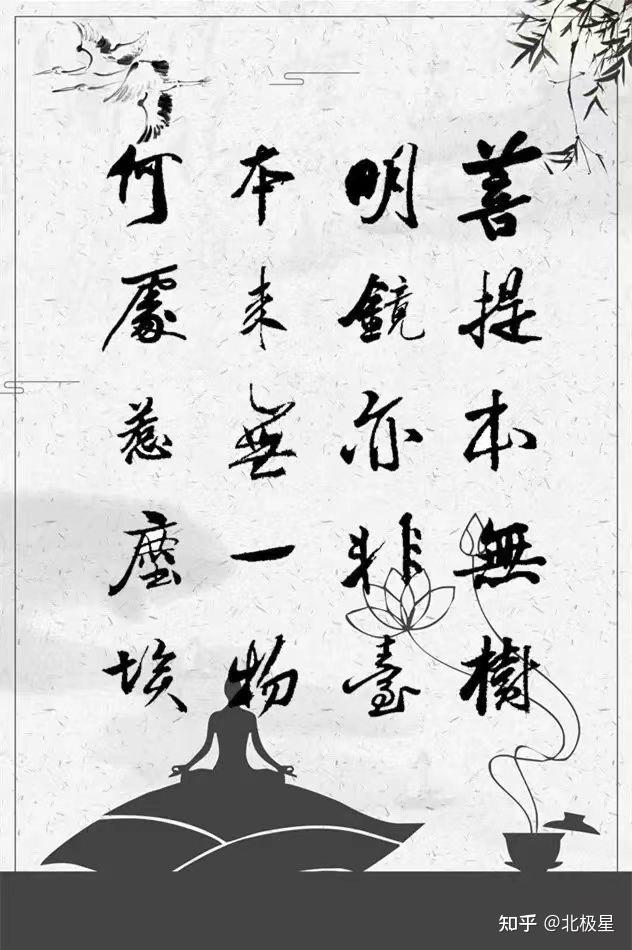 菩提本無樹
明鏡亦非臺
本来無一物
何處惹塵埃
知乎 @北极星